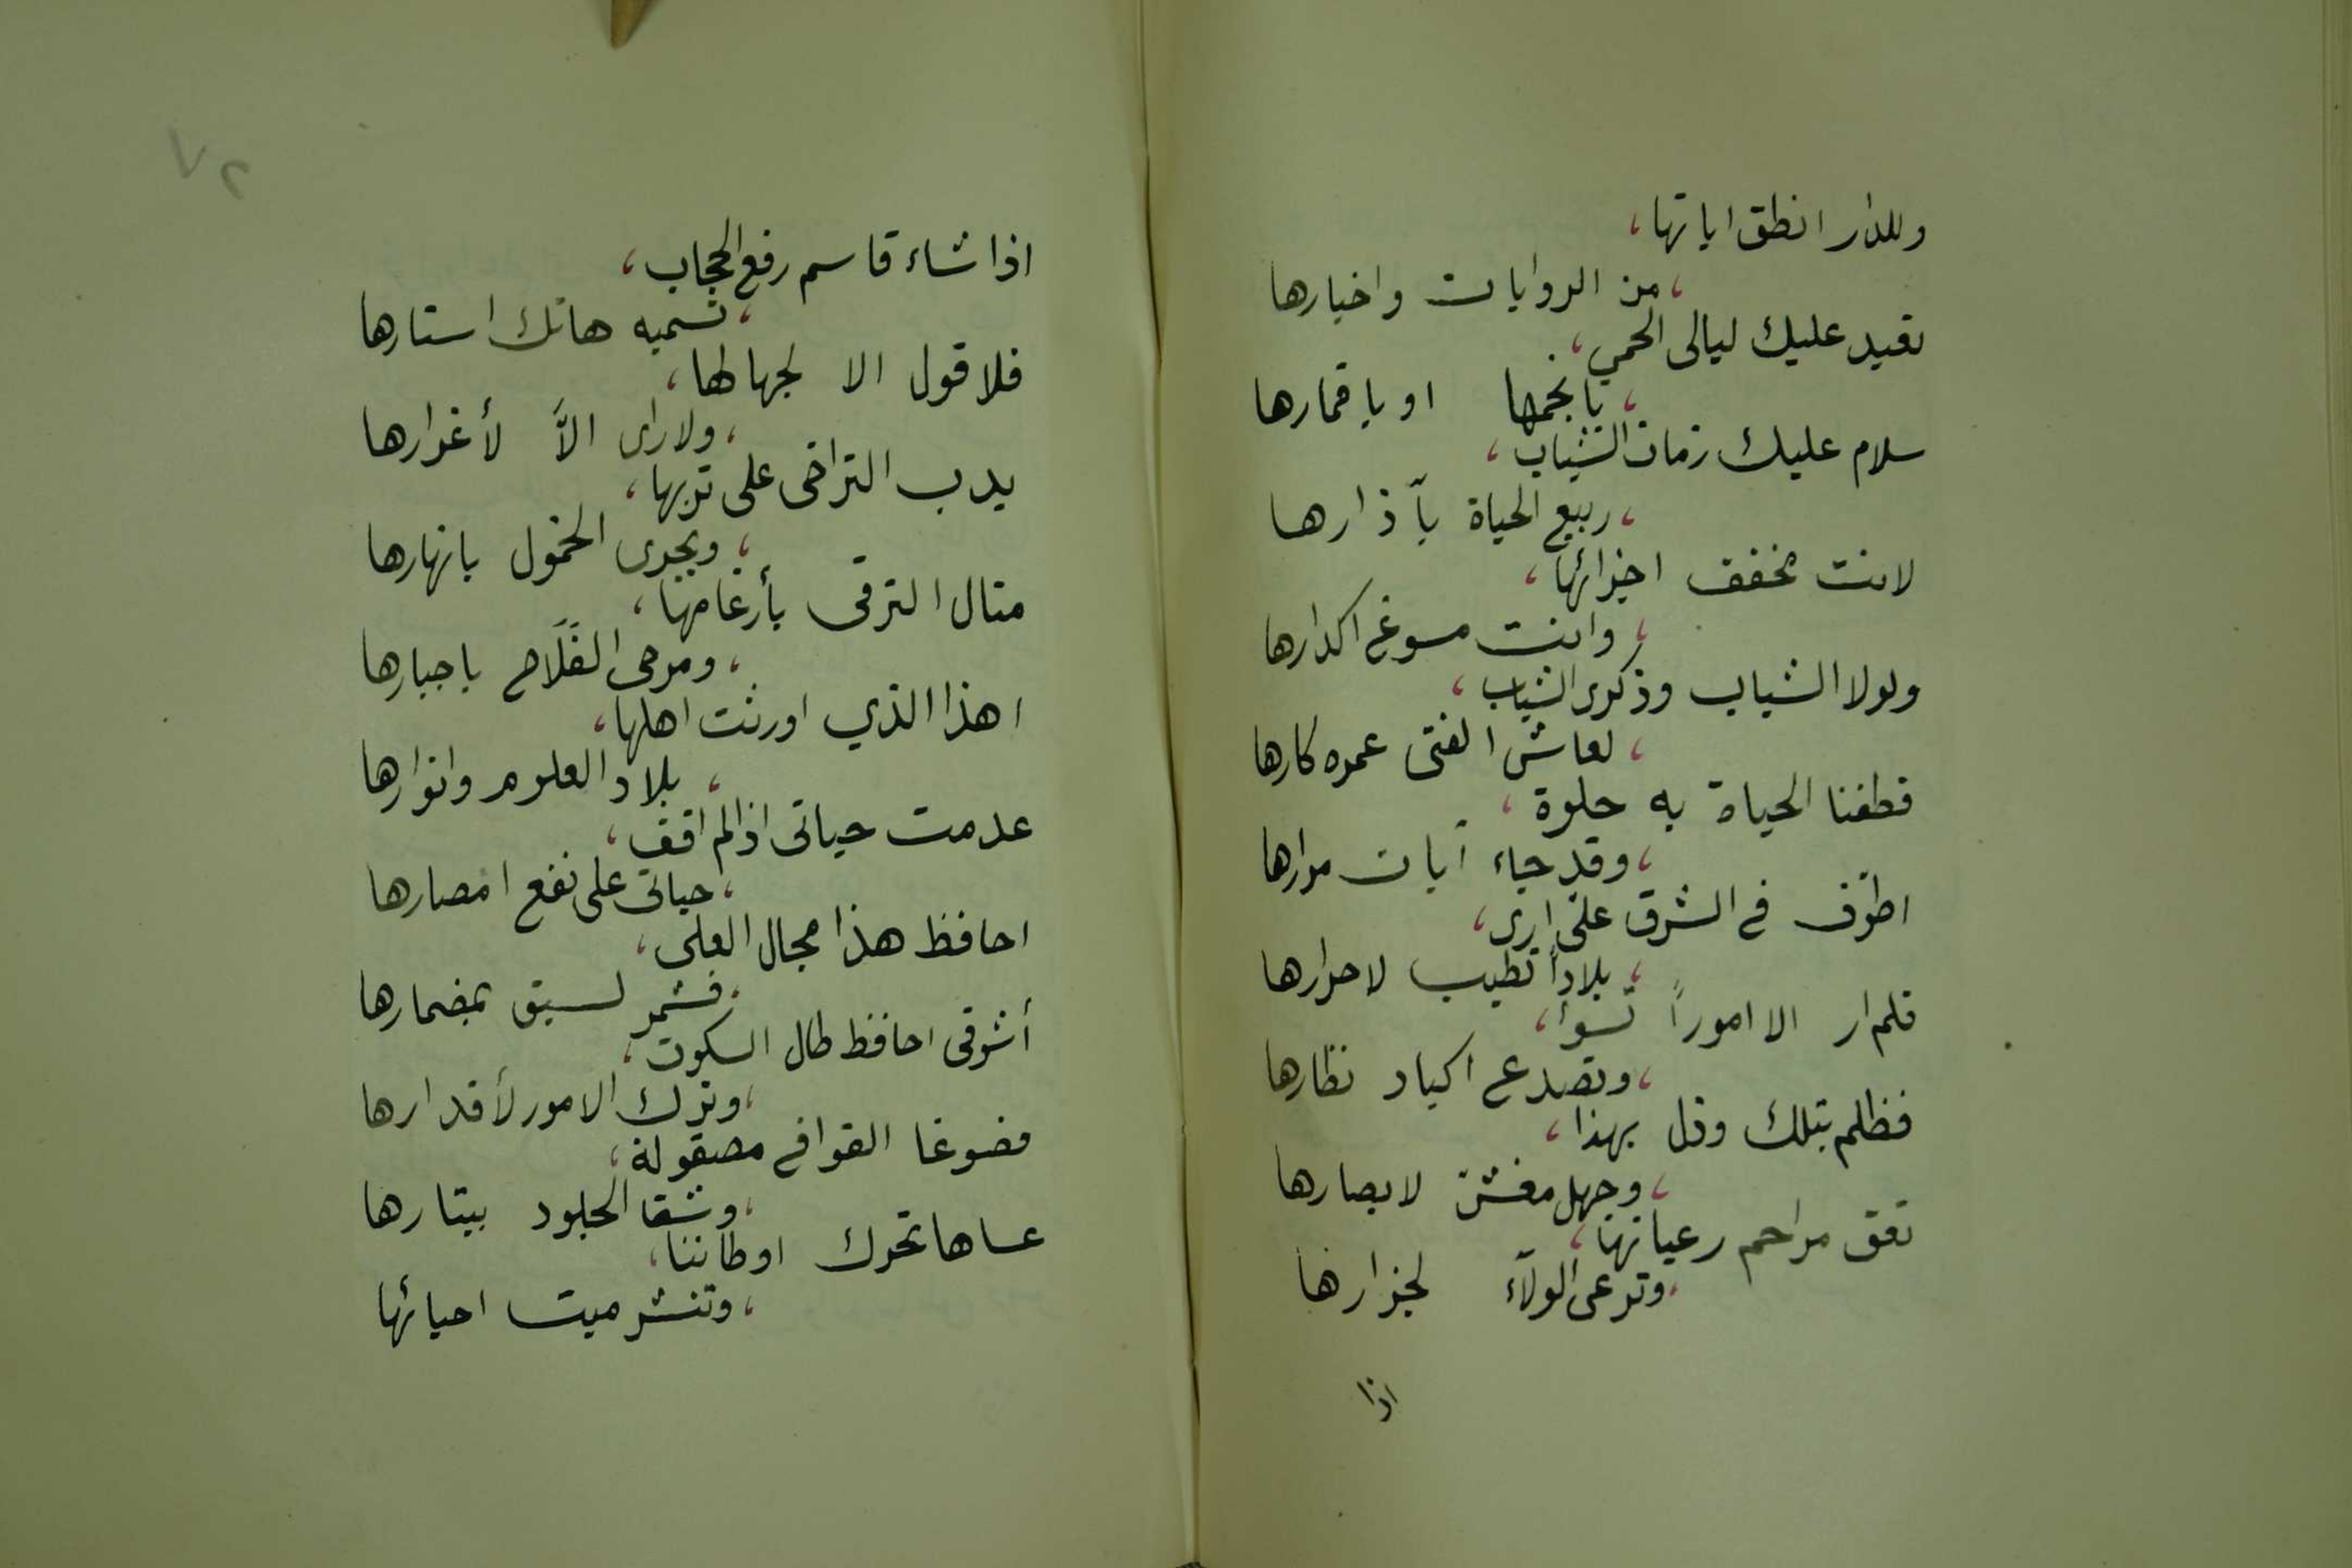 وللدار انطق اياتها،
،من الروايات واخبارها
تعيد عليك ليالى الحمى،
،بانجمها او باقمارها
سلام عليك زمان الشباب،
،ربيع الحياة بآذارها
لانت مخفف احزانها،
،وانت مسوغ اكدارها
ولولا الشباب وذكرى الشباب،
،لعاش الفتى عمره كارها
قطفنا الحياة به حلوة،
،وقد جاء آبان مرارها
اطوّف فى الشرق علّى ارى،
،بلاداً تطيب لاحرارها
فلم ار الا اموراً تسوأ،
،وتصدع اكباد نظارها
فظلم بتلك وذل بهذا،
،وجهل مغشّ لابصارها
تعق مراحم رعيانها،
،وترعى الولآء لجزارها
اذا
٧٢
اذا شاء قاسم رفع الحجاب،
،تسميه هاتك استارها
فلا قول الا لجهالها،
،ولا راى الاَّ لأغرارها
يدب التراخى على تربها،
،ويجرى الخمول بانهارها
منال الترقى بأرغامها،
،ومرجى الفَلَاح باجبارها
اهذا الذي اورثت اهلها،
،بلاد العلوم وانوارها
عدمت حياتى اذا لم اقف،
،حياتى على نفع امصارها
احافظ هذا مجال العلى،
،فشمر لسبق بمضمارها
أشوقى احافظ طال السكوت،
،وترك الامور لأقدارها
فصوغا القوافى مصقولة،
،وشقا الجلود ببتارها
عساها تحرك اوطاننا،
،وتنشر ميت احيائها